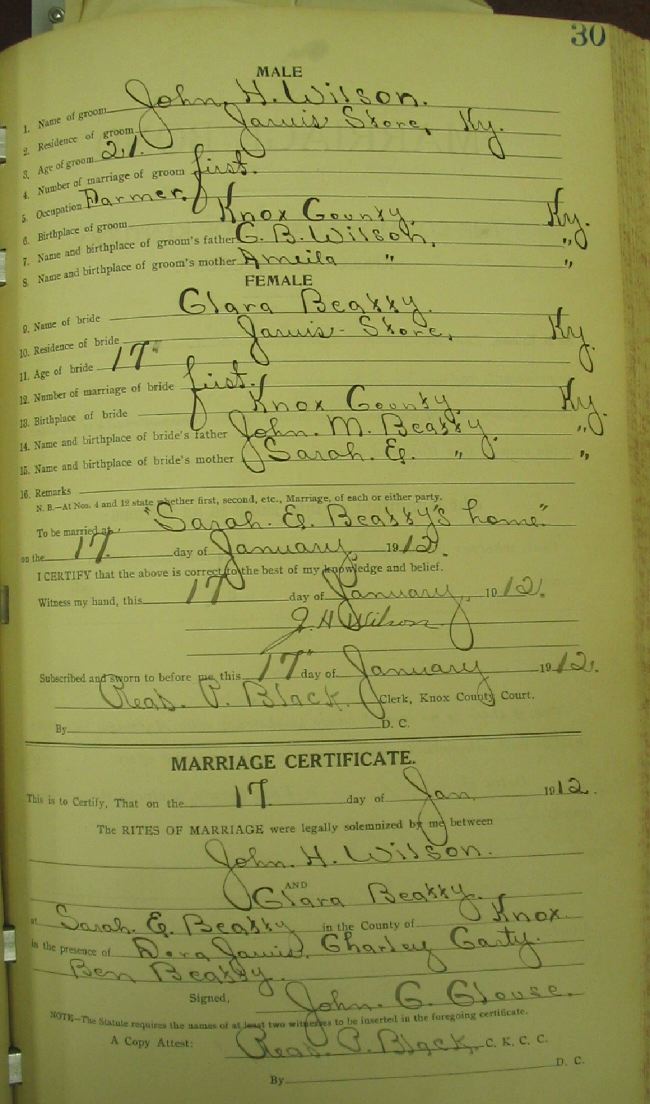 30
MALE
1. Name of groom John. H. Wilson.
2. Residence of groom Jarvis Store, Ky.
3. Age of groom 21.
4. Number of marriage of groom first.
5. Occupation Farmer.
6. Birthplace of groom Knox County, Ky.
7. Name and birthplace of groom's father G. B. Wilson, "
8. Name and birthplace of groom's mother Ameila " "
FEMALE
9. Name of bride Clara Beatty.
10. Residence of bride Jarvis Store, Ky.
11. Age of bride 17
12. Number of marriage of bride first.
13. Birthplace of bride Knox County, Ky.
14. Name and birthplace of bride's father John. M. Beatty "
15. Name and birthplace of bride's mother Sarah. E. " "
16. Remarks
N. B.—At Nos. 4 and 12 state whether first, second, etc., Marriage, of each or either party.
To be married at "Sarah. E. Beatty's home."
on the 17 day of January, 1912.
I CERTIFY that the above is correct to the best of my knowledge and belief.
Witness my hand, this 17 day of January, 1912.
J. H. Wilson
Subscribed and sworn to before me, this 17" day of January 1912.
Read. P. Black. Clerk, Knox County Court.
By D. C.
MARRIAGE CERTIFICATE.
This is to Certify, That on the 17 day of Jan 1912.
The RITES OF MARRIAGE were legally solemnized by me between
John. H. Wilson.
AND
Clara Beatty.
at Sarah. E. Beatty in the County of Knox
in the presence of Dora Jarvis, Charley Casty.
Ben Beatty.
Signed, John. G. Clouse.
NOTE—The Statute requires the names of at least two witnesses to be inserted in the foregoing certificate.
A Copy Attest: Read. P. Black, C. K. C. C.
By D. C.